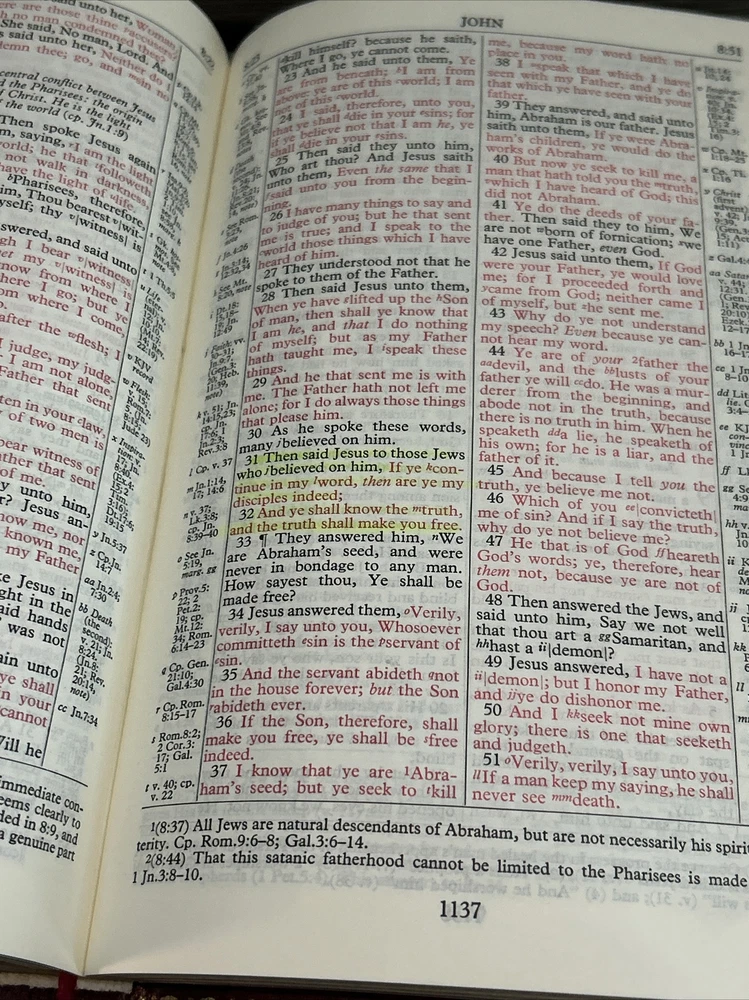 said unto her,
ere are those thine accusers?
h no man condemned thee?
She said, No man, Lord. And
s said unto her, Neither do
demn thee; go, and sin no
central conflict between Jesus
d the Pharisees: the origin
f Christ. He is the light
f the world (cp. Jn.1:9)
Then spoke Jesus again
m, saying, I am the light
world; he that followeth
not walk in darkness,
have the light of life.
Pharisees, therefore,
him, Thou bearest wit-
yself; thy witness is
swered, and said unto
gh I bear witness
yet my witness is
now from where I
here I go; but ye
om where I come,
after the flesh; I
I judge, my judg-
I am not alone,
Father that sent
tten in your law,
y of two men is
bear witness of
ather that sent
of me.
y unto him,
r? Jesus an-
ow me, nor
known me,
my Father
ke Jesus in
ght in the
aid hands
was not
ain unto
ye shall
n your
cannot
Will he
immediate con-
eems clearly to
ded in 8:9, and
a genuine part
v KJV
record
y Jn.5:37
z Cp.Jn.
14:7
aa Jn.2:4;
7:30
bb Death
(the
second).
cc Jn.7:34
JOHN
8:51
kill himself? because he saith,
Where I go, ye cannot come.
23 And he said unto them, Ye
are from beneath; I am from
above: ye are of this world; I am
not of this world.
24 I said, therefore, unto you,
that ye shall die in your sins; for
if ye believe not that I am he, ye
shall die in your sins.
25 Then said they unto him,
Who art thou? And Jesus saith
unto them, Even the same that I
said unto you from the begin-
ning.
26 I have many things to say and
to judge of you; but he that sent
me is true; and I speak to the
world those things which I have
heard of him.
27 They understood not that he
spoke to them of the Father.
28 Then said Jesus unto them,
When ye have lifted up the Son
of man, then shall ye know that
I am he, and that I do nothing
of myself; but as my Father
hath taught me, I speak these
things.
29 And he that sent me is with
me. The Father hath not left me
alone; for I do always those things
that please him.
30 As he spoke these words,
many believed on him.
31 Then said Jesus to those Jews
who believed on him, If ye con-
tinue in my word, then are ye my
disciples indeed;
32 And ye shall know the truth,
and the truth shall make you free.
33 ¶ They answered him, We
are Abraham's seed, and were
never in bondage to any man.
How sayest thou, Ye shall be
made free?
34 Jesus answered them, Verily,
verily, I say unto you, Whosoever
committeth sin is the servant of
sin.
35 And the servant abideth not
in the house forever; but the Son
abideth ever.
36 If the Son, therefore, shall
make you free, ye shall be free
indeed.
37 I know that ye are 1Abra-
ham's seed; but ye seek to kill
l Cp. v. 37
m Jn.1:14,
17; 14:6
n v. 37;
Lk.3:8;
cp. Jn.
8:39–40
o See Jn.
5:19,
marg. gg
p Prov.5:
22; 2
Pet.2:
19; cp.
Mt.12:
34; Rom.
6:14–23
q Cp. Gen.
21:10;
Gal.4:30
r Cp.Rom.
8:15–17
s Rom.8:2;
2 Cor.3:
17; Gal.
5:1
t v. 40; cp.
v. 22
me, because my word hath no
place in you.
38 I speak that which I have
seen with my Father, and ye do
that which ye have seen with your
father.
39 They answered, and said unto
him, Abraham is our father. Jesus
saith unto them, If ye were Abra-
ham's children, ye would do the
works of Abraham.
40 But now ye seek to kill me, a
man that hath told you the truth,
which I have heard of God; this
did not Abraham.
41 Ye do the deeds of your fa-
ther. Then said they to him, We
are not born of fornication; we
have one Father, even God.
42 Jesus said unto them, If God
were your Father, ye would love
me; for I proceeded forth and
came from God; neither came I
of myself, but he sent me.
43 Why do ye not understand
my speech? Even because ye can-
not hear my word.
44 Ye are of your 2father the
aadevil, and the bblusts of your
father ye will ccdo. He was a mur-
derer from the beginning, and
abode not in the truth, because
there is no truth in him. When he
speaketh dda lie, he speaketh of
his own; for he is a liar, and the
father of it.
45 And because I tell you the
truth, ye believe me not.
46 Which of you ee|convicteth|
me of sin? And if I say the truth,
why do ye not believe me?
47 He that is of God ffheareth
God's words; ye, therefore, hear
them not, because ye are not of
God.
48 Then answered the Jews, and
said unto him, Say we not well
that thou art a ggSamaritan, and
hhhast a ii|demon|?
49 Jesus answered, I have not a
ii|demon|; but I honor my Father,
and jjye do dishonor me.
50 And I kkseek not mine own
glory; there is one that seeketh
and judgeth.
51 Verily, verily, I say unto you,
llIf a man keep my saying, he shall
never see mmdeath.
1(8:37) All Jews are natural descendants of Abraham, but are not necessarily his spirit
terity. Cp. Rom.9:6–8; Gal.3:6–14.
2(8:44) That this satanic fatherhood cannot be limited to the Pharisees is made
1 Jn.3:8–10.
1137